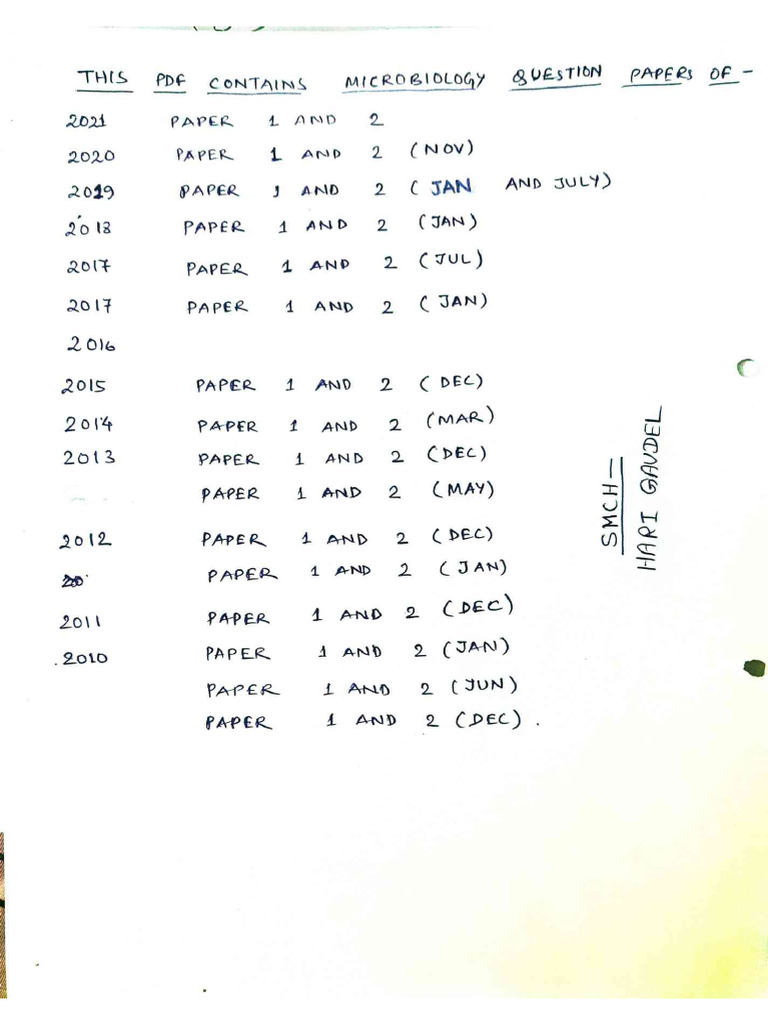 THIS PDF CONTAINS MICROBIOLOGY QUESTION PAPERS OF -
2021 PAPER 1 AND 2
2020 PAPER 1 AND 2 (NOV)
2019 PAPER 1 AND 2 (JAN AND JULY)
2018 PAPER 1 AND 2 (JAN)
2017 PAPER 1 AND 2 (JUL)
2017 PAPER 1 AND 2 (JAN)
2016
2015 PAPER 1 AND 2 (DEC)
2014 PAPER 1 AND 2 (MAR)
2013 PAPER 1 AND 2 (DEC)
PAPER 1 AND 2 (MAY)
2012 PAPER 1 AND 2 (DEC)
PAPER 1 AND 2 (JAN)
2011 PAPER 1 AND 2 (DEC)
.2010 PAPER 1 AND 2 (JAN)
PAPER 1 AND 2 (JUN)
PAPER 1 AND 2 (DEC).
SMCH—
HARI GAUDEL